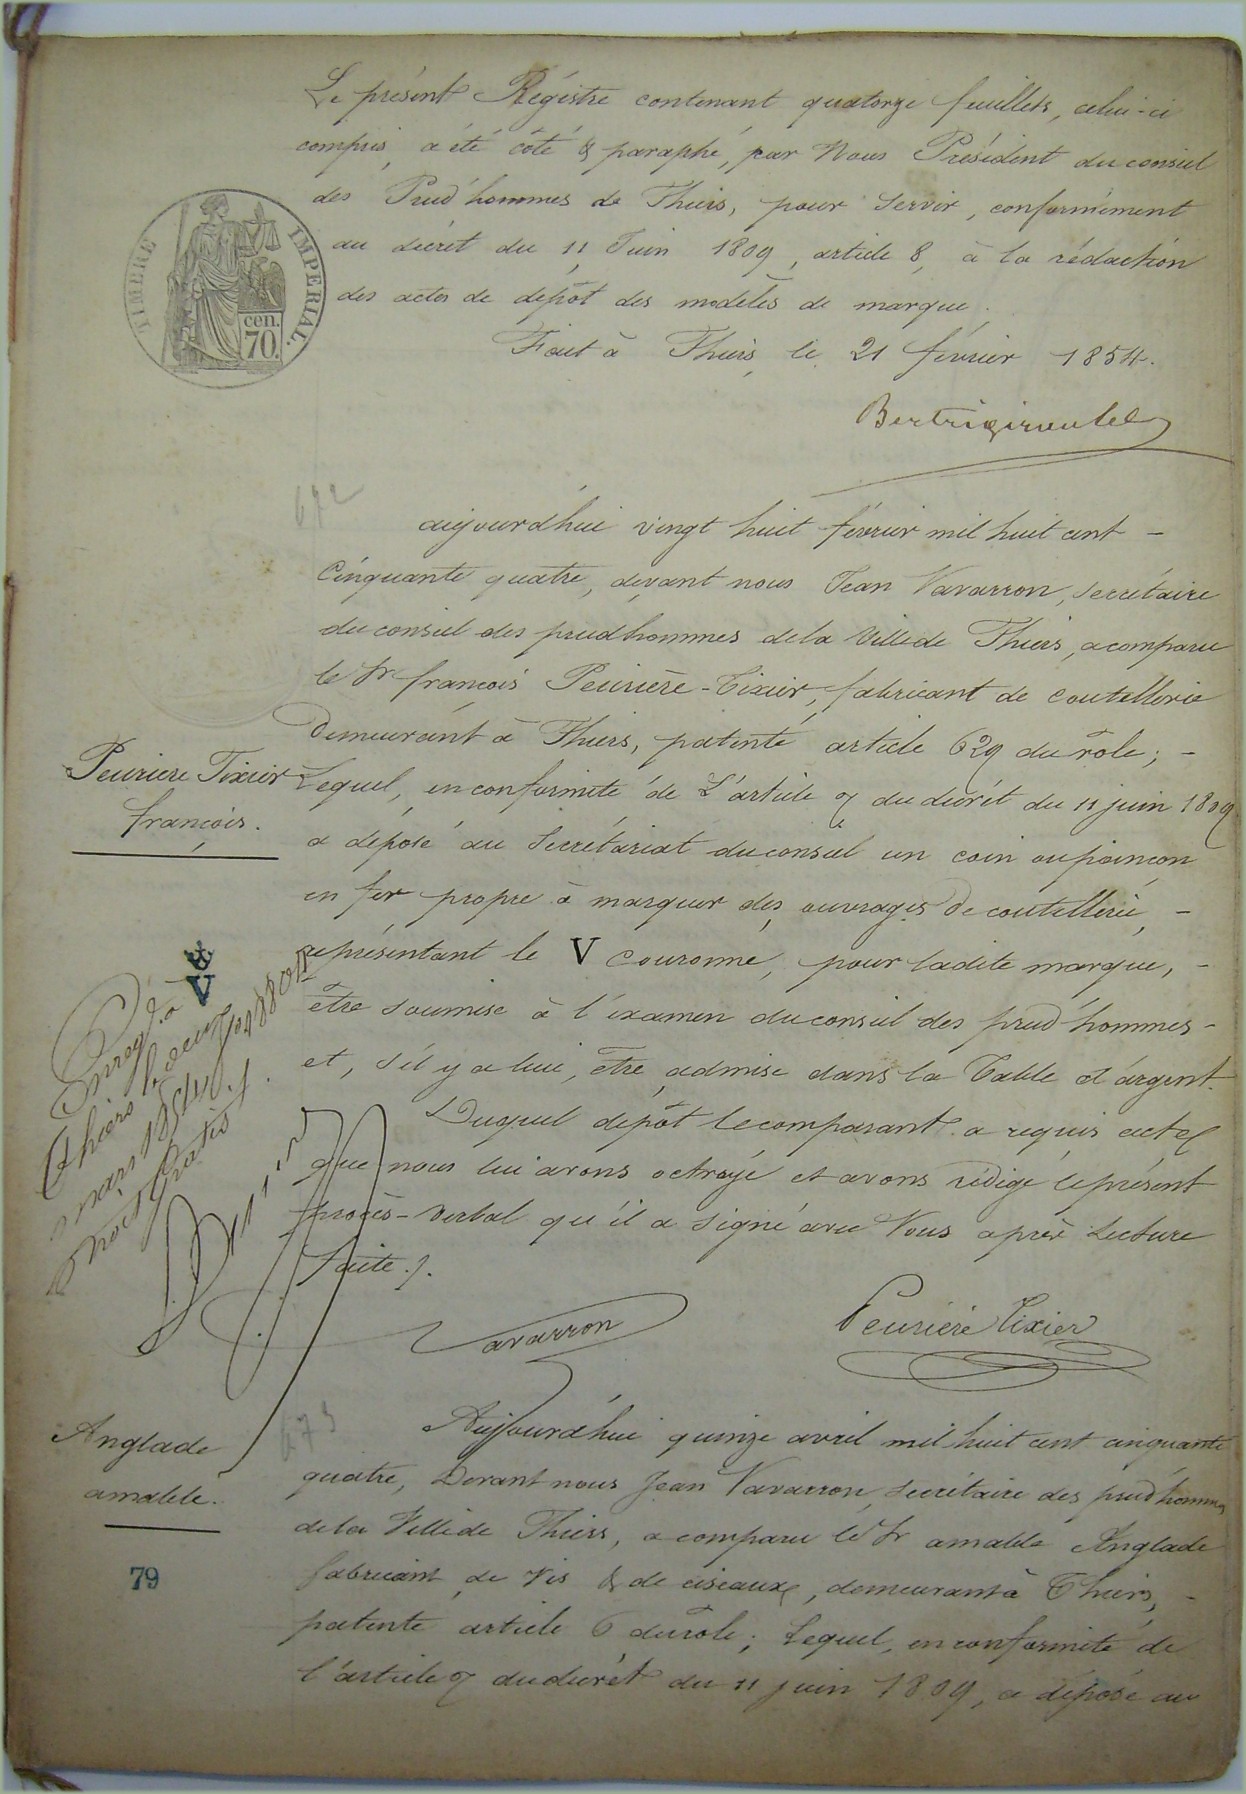 Le présent Régistre contenant quatorze feuillets, celui-ci
compris, a été côté & paraphé, par Nous Président du conseil
des Prud'hommes de Thiers, pour servir, conformément
au décrét du 11 Juin 1809, article 8, à la rédaction
des actes de dépôt des modèles de marque.
Fait à Thiers, le 21 février 1854.
TIMBRE IMPERIAL.
cen.
70.
672
aujourd'hui vingt huit février mil huit cent -
Cinquante quatre, devant nous Jean Navarron, secrétaire
du conseil des prudhommes de la Ville de Thiers, a comparu
le Sr françois Peurière-Tixier, fabricant de coutellerie
Demeurant à Thiers, patenté article 629 du rôle; -
Peuriere Tixier
françois.
Lequel, en conformité de L'article 7 du décrét du 11 juin 1809
a déposé au Secrétariat du conseil un coin ou poinçon
en fer propre à marquer des ouvrages de coutellerie, -
représentant le V couronné, pour ladite marque, -
être soumise à l'éxamen du conseil des prud'hommes -
et, s'il y a lieu, être admise dans la Table d'argent.
V
Enreg.
Thiers
mars 1854
gratis
Duquel dépôt le comparant a requis acte
que nous lui avons octroyé et avons rédigé le présent
procès-verbal qu'il a signé avec Nous après Lecture
faite.
Navarron
Peurière Tixier
Anglade
amable.
79
673
Aujourd'hui quinze avril mil huit cent cinquante
quatre, Devant nous Jean Navarron, secrétaire des prud'hommes
de la Ville de Thiers, a comparu le Sr amable Anglade
fabricant de Vis & de ciseaux, demeurant à Thiers, -
patenté article 6 du rôle; Lequel, en conformité de
l'article 7 du décrét du 11 juin 1809, a déposé au